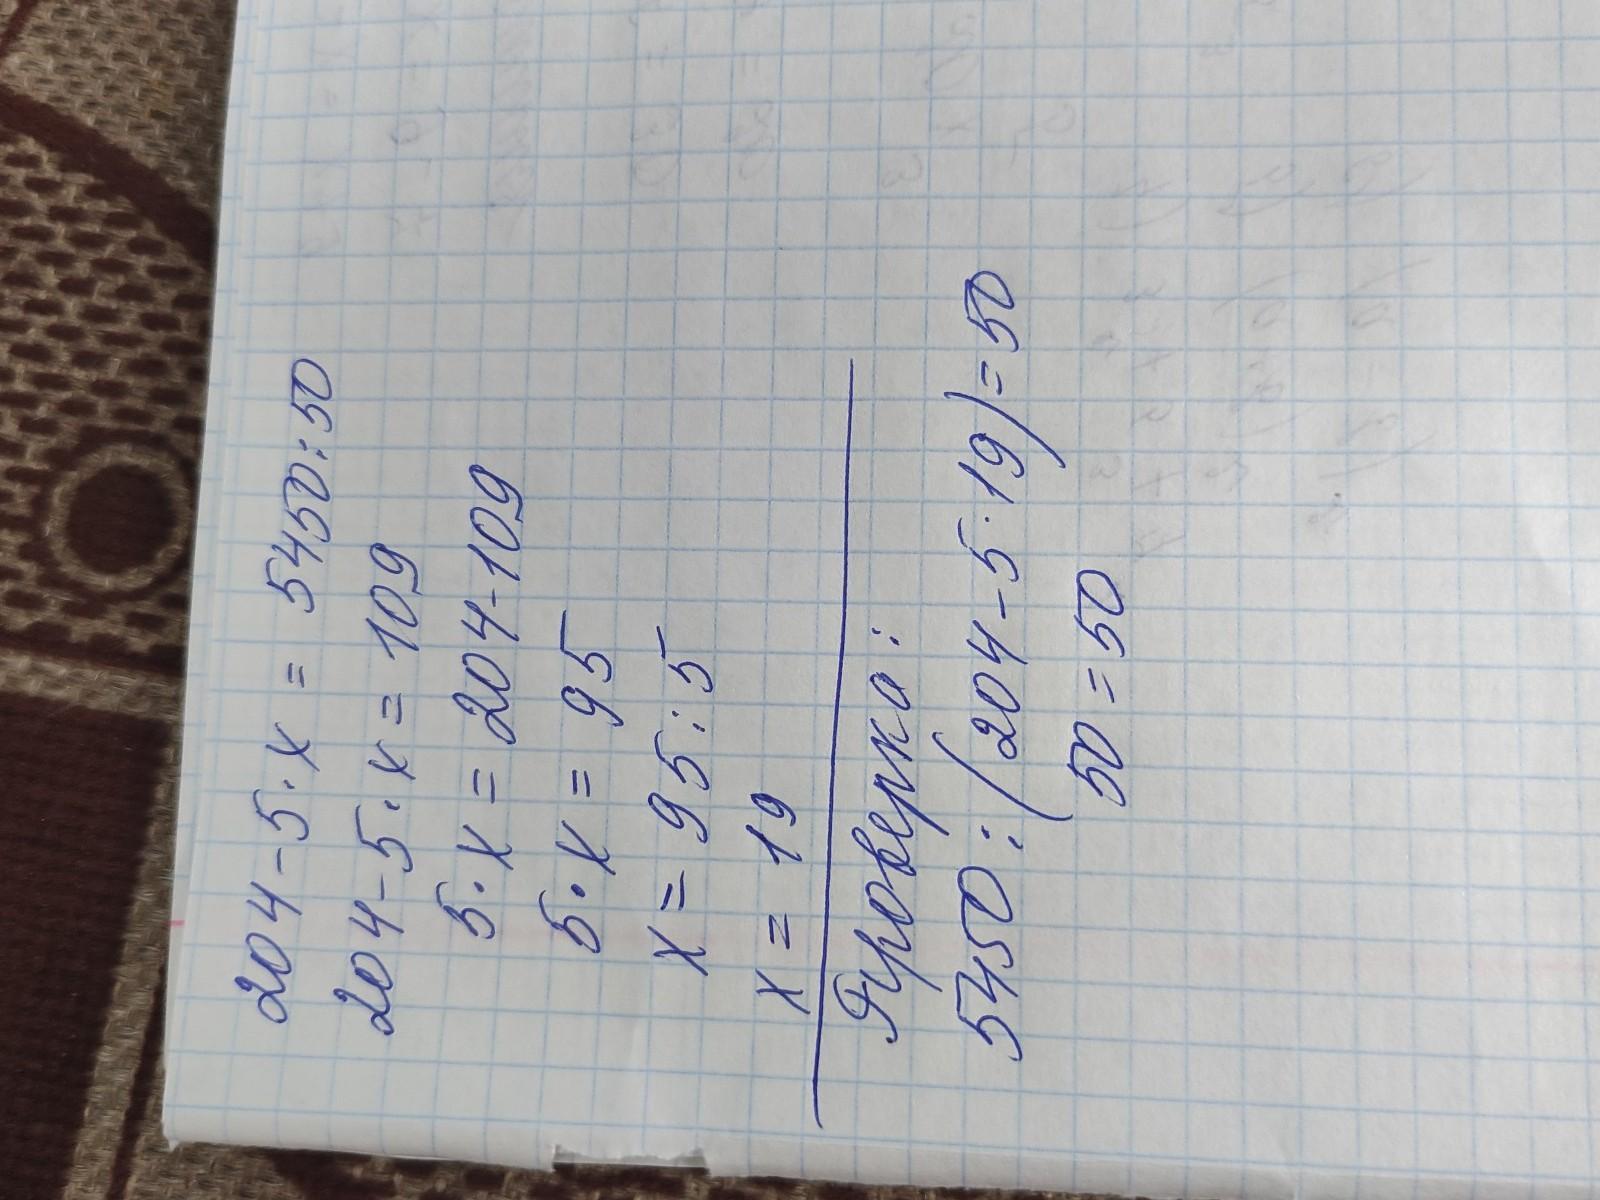 204-5·x = 5450:50
204-5·x = 109
5·x = 204-109
5·x = 95
x = 95:5
x = 19
Проверка:
5450:(204-5·19)=50
50=50